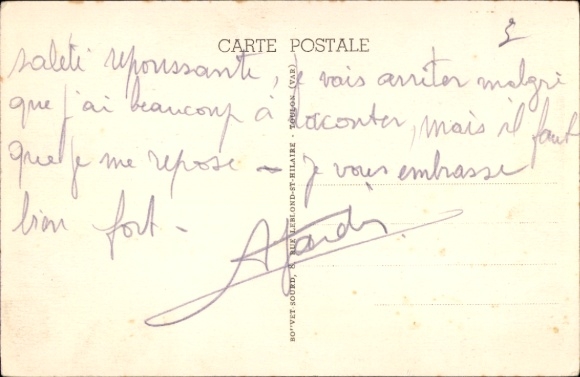 2
CARTE POSTALE
saleté repoussante, je vais arrêter malgré
que j'ai beaucoup à raconter, mais il faut
que je me repose — je vous embrasse
bien fort -
BOUVET SOURD, 8, RUE LEBLOND-ST-HILAIRE - TOULON (VAR)